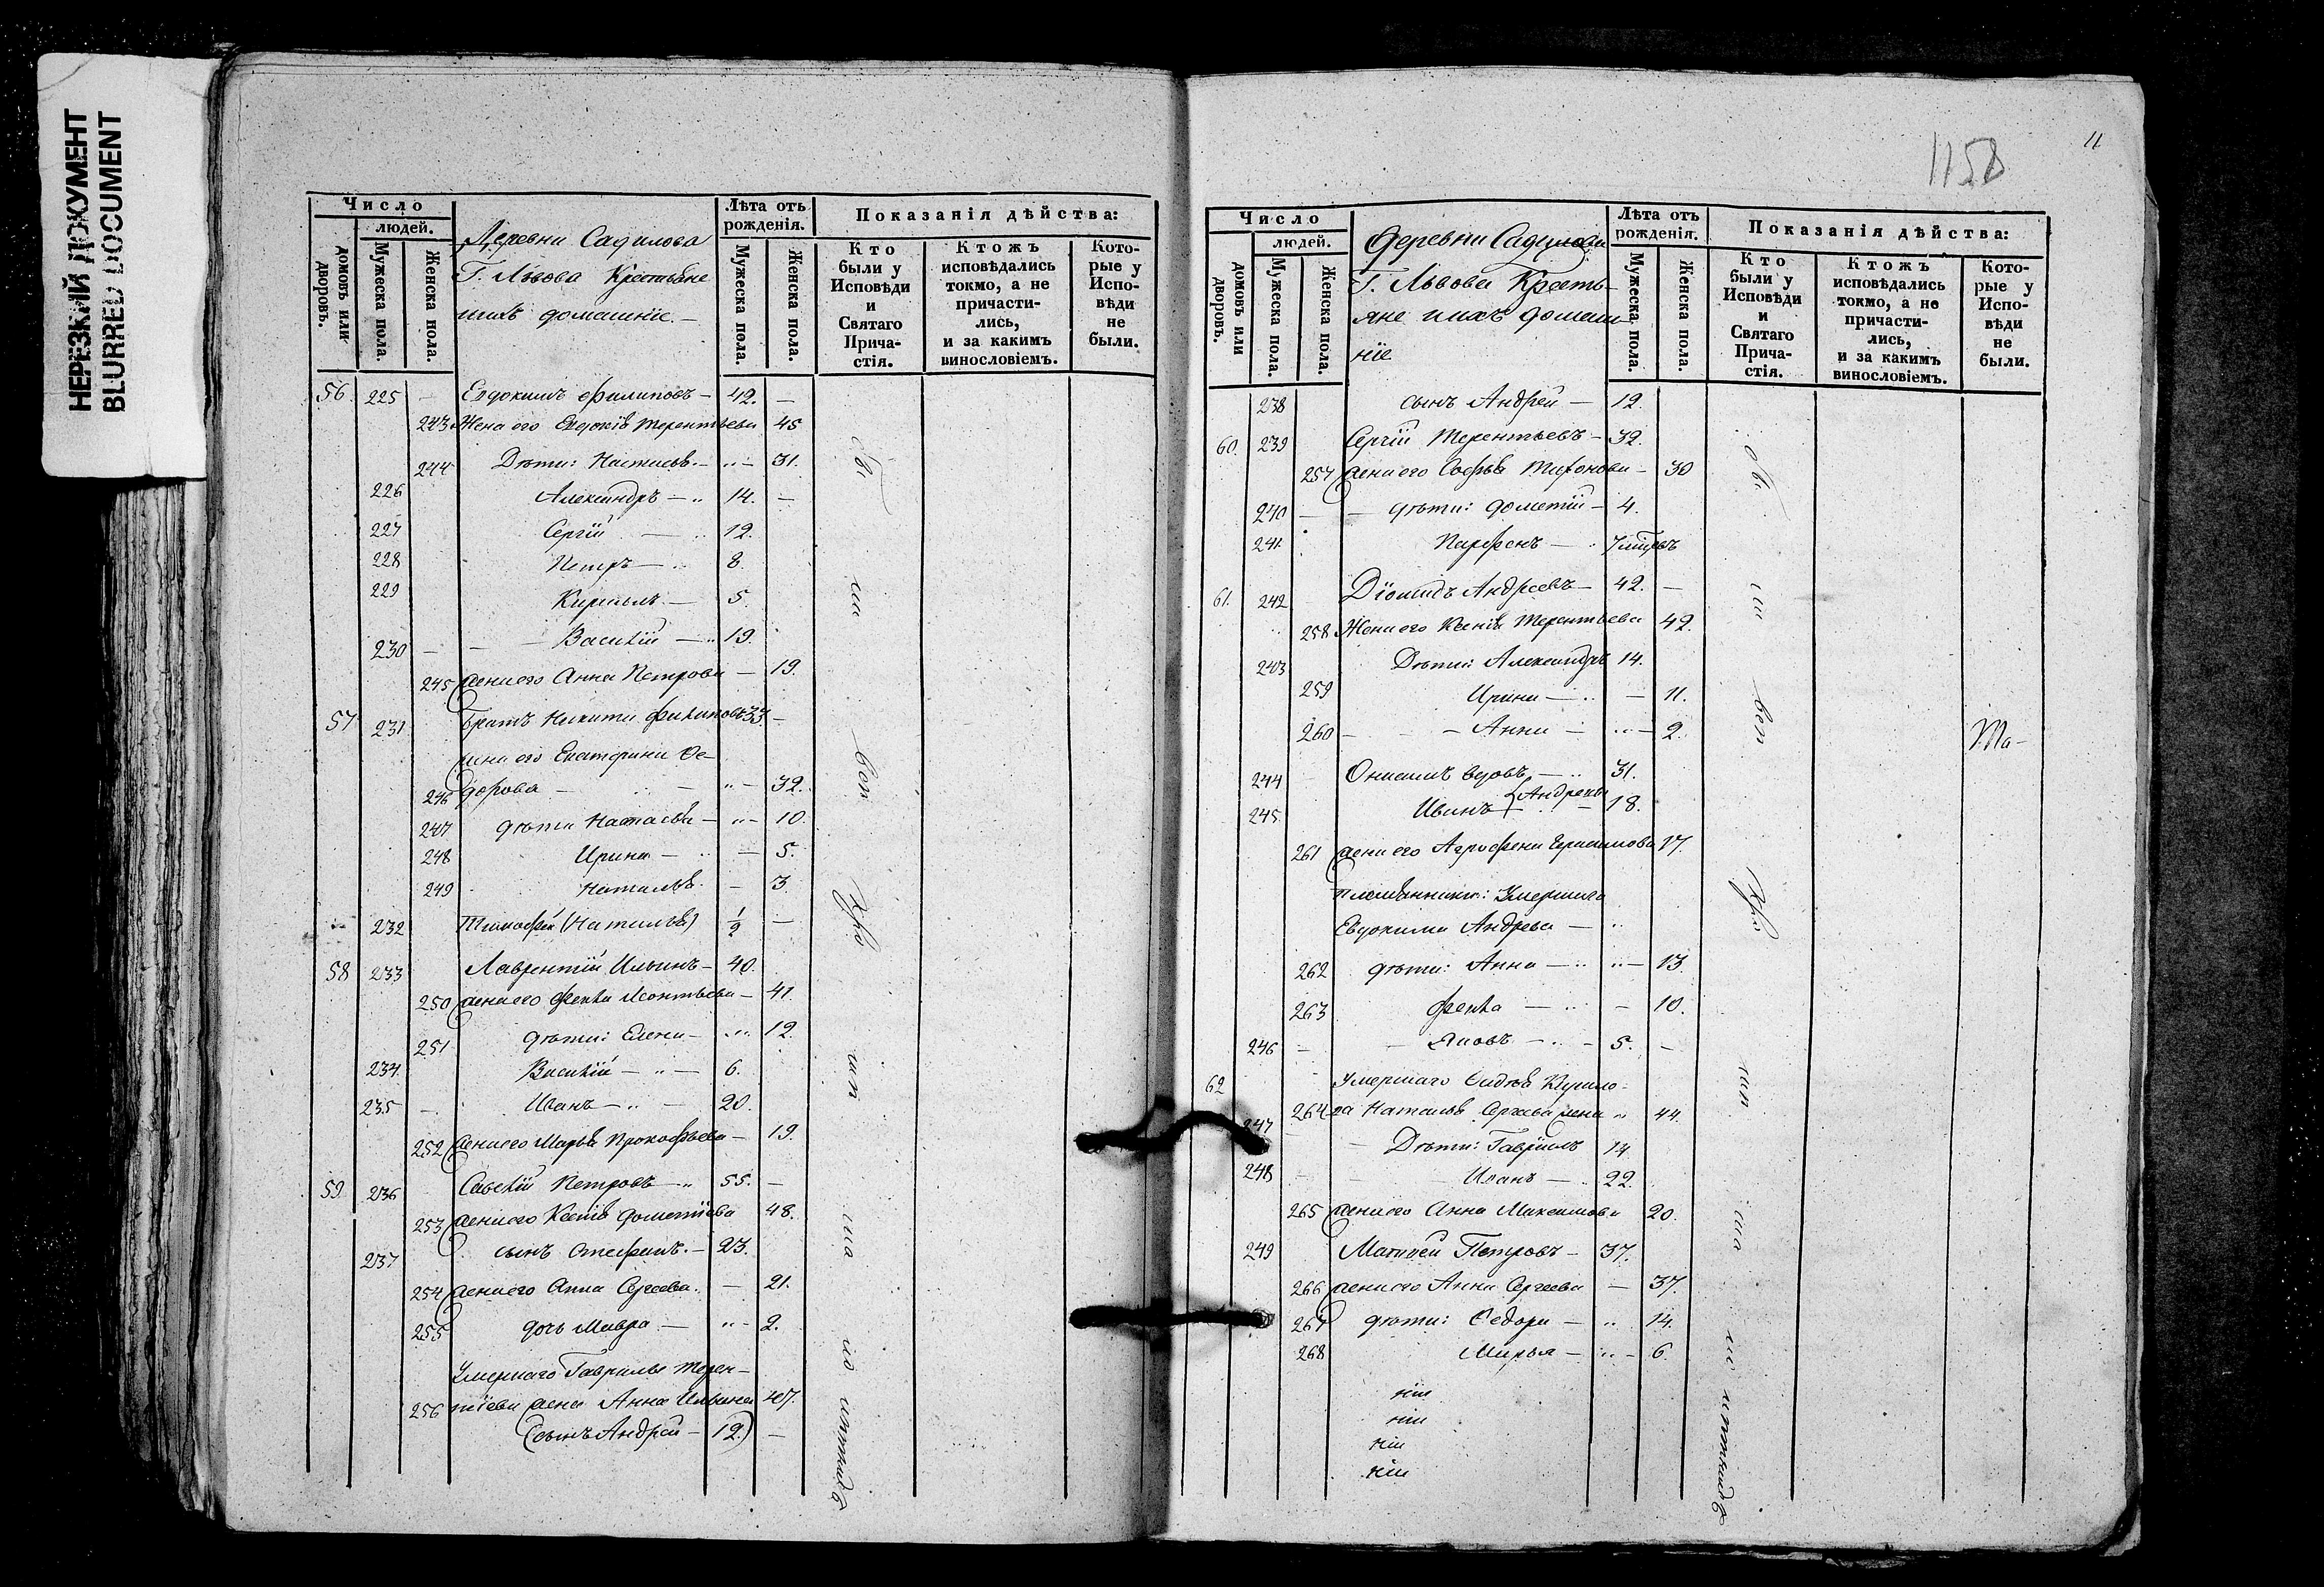 НЕРЕЗКИЙ ДОКУМЕНТ
BLURRED DOCUMENT
Число
людей.
домовъ или дворовъ.
Мужеска пола.
Женска пола.
Деревни Садилова
Г. Львова Крестьяне
ихъ домашніе. —
Лѣта отъ рожденія.
Мужеска пола.
Женска пола.
Показанія дѣйства:
Кто были у Исповѣди и Святаго Причастія.
Ктожъ исповѣдались токмо, а не причастились, и за какимъ винословіемъ.
Которые у Исповѣди не были.
56. 225 — Евдокимъ Филиповъ — 42. —
243 Жена его Евдокія Терентьева 45
244 Дѣти: — 31.
226 Александръ — 14. —
227 Сергій — 12.
228 Петръ — 8.
229 Кирилъ — 5.
230 — — Василій — 19.
245 жена его Анна Петрова — 19.
57 231 братъ Никита Филиповъ 33 —
жена его Екатерина Ѳе-
246 дорова — 32.
247 дѣти — 10.
248 Ирина — 5.
249 Наталья — 3
232 Тимофей (Наталья) 1/2 —
58 233 Лаврентій Ильинъ — 40.
250 жена его Фекла Леонтьева — 41.
251 дѣти: Елена — 12.
234 Василій — 6.
235 — Иванъ — 20.
252 жена его Марья Прокофьева — 19.
59 236 Савелій Петровъ — 55. —
253 жена его Ксенія Дометіева 48.
237 сынъ Стефанъ — 23.
254 жена его Анна Сергеева. — 21.
255 дочь Мавра — 2.
Умершаго Гаврилы Терен-
256 тіева жена Анна Ильина 47.
(сынъ Андрей — 12.) —
1158
11
Число
людей.
домовъ или дворовъ.
Мужеска пола.
Женска пола.
Деревни Садилова
Г. Львова Кресть-
яне ихъ домаш-
ніе
Лѣта отъ рожденія.
Мужеска пола.
Женска пола.
Показанія дѣйства:
Кто были у Исповѣди и Святаго Причастія.
Ктожъ исповѣдались токмо, а не причастились, и за какимъ винословіемъ.
Которые у Исповѣди не были.
238 сынъ Андрей — 12.
60. 239 Сергій Терентьевъ — 32.
257 жена его Софья — 30
240 — — дѣти: Дометій — 4.
241 Парфенъ —
61. 242 Діомидъ Андреевъ — 42. —
258 Жена его Ксенія Терентьева 42.
243 Дѣти: Александръ 14.
259 Ирина — — 11.
260 — — Анна — 2.
Ма-
244 Онисимъ вдовъ — 31.
245 Иванъ { Андреевы — 18.
261 жена его Агрофена Герасимова 17.
племянники: Умершаго
Евдокима Андреева —
262 дѣти: Анна — 13
263 Фекла — — 10.
246 — — Яковъ — 5. —
62 Умершаго
264 Наталья Сергеева жена 44.
247 — Дѣти: Гавріилъ 14
248 — Иванъ — 22.
265 жена его Анна Максимова 20.
249 Матвей Петровъ — 37.
266 жена его Анна Сергеева — 37.
267 дѣти: Ѳедора — 14.
268 Марья — 6.